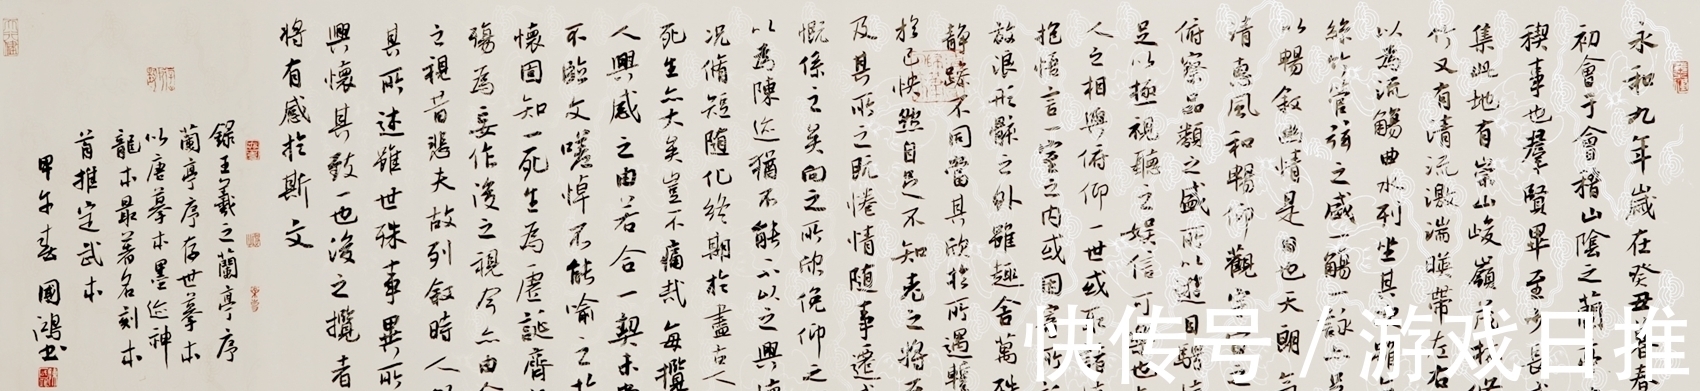 永和九年歲在癸丑暮春
初會于會稽山陰之蘭
禊事也羣賢畢至少長
集此地有崇山峻嶺茂林
竹又有清流激湍暎帶左右
以為流觴曲水列坐其
絲竹管弦之盛一觴一詠
以暢敘幽情是日也天朗氣
清惠風和暢仰觀宇宙之
俯察品類之盛所以遊目騁
足以極視聽之娛信可樂也
人之相與俯仰一世或取諸
抱悟言一室之内或因寄所
放浪形骸之外雖趣舍萬殊
静躁不同當其欣於所遇蹔
於己怏然自足不知老之將
及其所之既惓情隨事遷
慨係之矣向之所欣俛仰之
以為陳迹猶不能不以之興懷
况脩短隨化終期於盡古人
死生亦大矣豈不痛哉每攬
人興感之由若合一契未
不臨文嗟悼不能喻之於
懷固知一死生為虛誕齊
殤為妄作後之視今亦由
之視昔悲夫故列敘時人
其所述雖世殊事異所
興懷其致一也後之攬者
將有感於斯文
錄王羲之蘭亭序
蘭亭序存世摹本
以唐摹本墨迹神
龍本最著名刻本
首推定武本
甲午春國鴻书
快传号/游戏日推